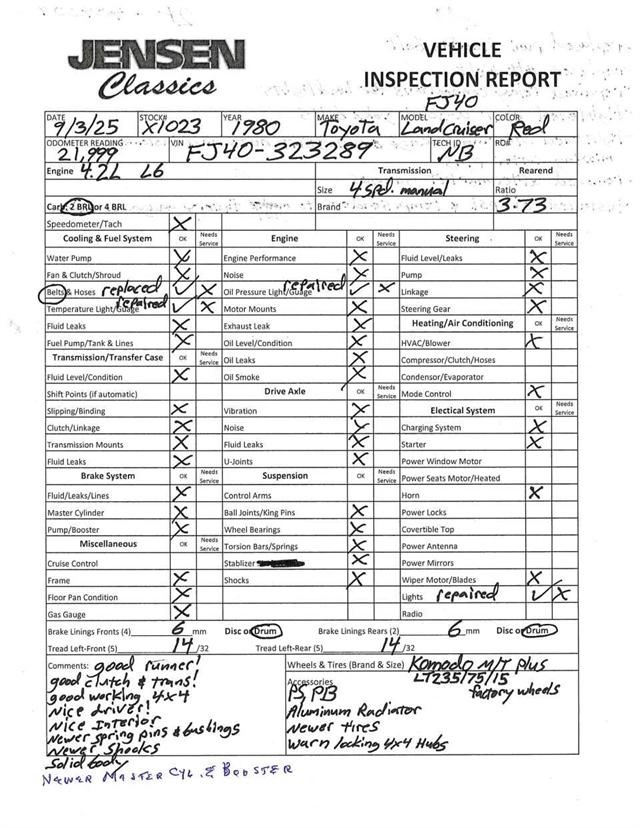 JENSEN
Classics
VEHICLE
INSPECTION REPORT
FJ40
DATE STOCK# YEAR MAKE MODEL COLOR
9/3/25 X1023 1980 Toyota Landcruiser Red
ODOMETER READING VIN TECH ID RO#
21,999 FJ40-323289 NB
Engine 4.2L L6 Transmission Rearend
Size 4 spd. manual Ratio
Carb: 2 BRL or 4 BRL Brand 3.73
Speedometer/Tach X
Cooling & Fuel System OK Needs Service Engine OK Needs Service Steering OK Needs Service
Water Pump X Engine Performance X Fluid Level/Leaks X
Fan & Clutch/Shroud X Noise X Pump X
Belts & Hoses replaced ✓ X Oil Pressure Light/Guage repaired ✓ X Linkage X
Temperature Light/Guage repaired ✓ X Motor Mounts X Steering Gear X
Fluid Leaks X Exhaust Leak X Heating/Air Conditioning OK Needs Service
Fuel Pump/Tank & Lines X Oil Level/Condition X HVAC/Blower X
Transmission/Transfer Case OK Needs Service Oil Leaks X Compressor/Clutch/Hoses
Fluid Level/Condition X Oil Smoke X Condensor/Evaporator
Shift Points (if automatic) Drive Axle OK Needs Service Mode Control X
Slipping/Binding X Vibration X Electical System OK Needs Service
Clutch/Linkage X Noise X Charging System X
Transmission Mounts X Fluid Leaks X Starter X
Fluid Leaks X U-Joints X Power Window Motor
Brake System OK Needs Service Suspension OK Needs Service Power Seats Motor/Heated
Fluid/Leaks/Lines X Control Arms Horn X
Master Cylinder X Ball Joints/King Pins X Power Locks
Pump/Booster X Wheel Bearings X Covertible Top
Miscellaneous OK Needs Service Torsion Bars/Springs X Power Antenna
Cruise Control Stablizer X Power Mirrors
Frame X Shocks X Wiper Motor/Blades X
Floor Pan Condition X Lights repaired ✓ X
Gas Gauge X Radio
Brake Linings Fronts (4) 6 mm Disc or Drum Brake Linings Rears (2) 6 mm Disc or Drum
Tread Left-Front (5) 14 /32 Tread Left-Rear (5) 14 /32
Comments: good runner! Wheels & Tires (Brand & Size) Komodo M/T Plus
good clutch & trans! Accessories LT235/75/15
good working 4x4 PS, PB factory wheels
Nice driver! Aluminum Radiator
Nice Interior Newer tires
Newer spring pins & bushings Warn locking 4x4 Hubs
Newer Shocks
Solid body
NEWER MASTER CYL. & BOOSTER